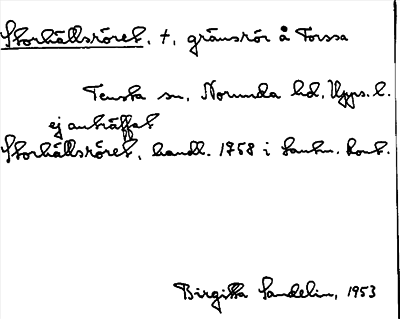 Storhällsröret, †, gränsrör å Torssa
Tensta sn, Norunda hd, Upps. l.
ej anträffat
Storhällsröret, handl. 1758 i Lantm. kont.
Birgitta Sandelin, 1953